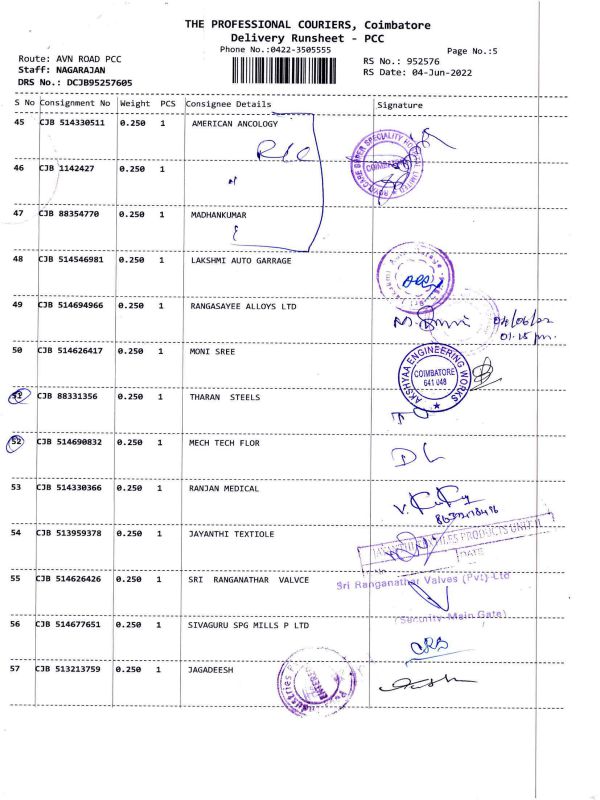 THE PROFESSIONAL COURIERS, Coimbatore
Delivery Runsheet - PCC
Phone No.:0422-3505555
Page No.:5
Route: AVN ROAD PCC
RS No.: 952576
Staff: NAGARAJAN
RS Date: 04-Jun-2022
DRS No.: DCJB95257605
S No Consignment No Weight PCS Consignee Details Signature
45 CJB 514330511 0.250 1 AMERICAN ANCOLOGY
COIMBATORE
46 CJB 1142427 0.250 1
47 CJB 88354770 0.250 1 MADHANKUMAR
48 CJB 514546981 0.250 1 LAKSHMI AUTO GARRAGE
49 CJB 514694966 0.250 1 RANGASAYEE ALLOYS LTD
04/06/22
01.15 pm.
50 CJB 514626417 0.250 1 MONI SREE
AKSHYAA ENGINEERING WORKS
COIMBATORE
641 048
51 CJB 88331356 0.250 1 THARAN STEELS
52 CJB 514690832 0.250 1 MECH TECH FLOR
DL
53 CJB 514330366 0.250 1 RANJAN MEDICAL
54 CJB 513959378 0.250 1 JAYANTHI TEXTIOLE
DATE
55 CJB 514626426 0.250 1 SRI RANGANATHAR VALVCE
Sri Ranganathar Valves (Pvt) Ltd
(Security Main Gate)
56 CJB 514677651 0.250 1 SIVAGURU SPG MILLS P LTD
57 CJB 513213759 0.250 1 JAGADEESH